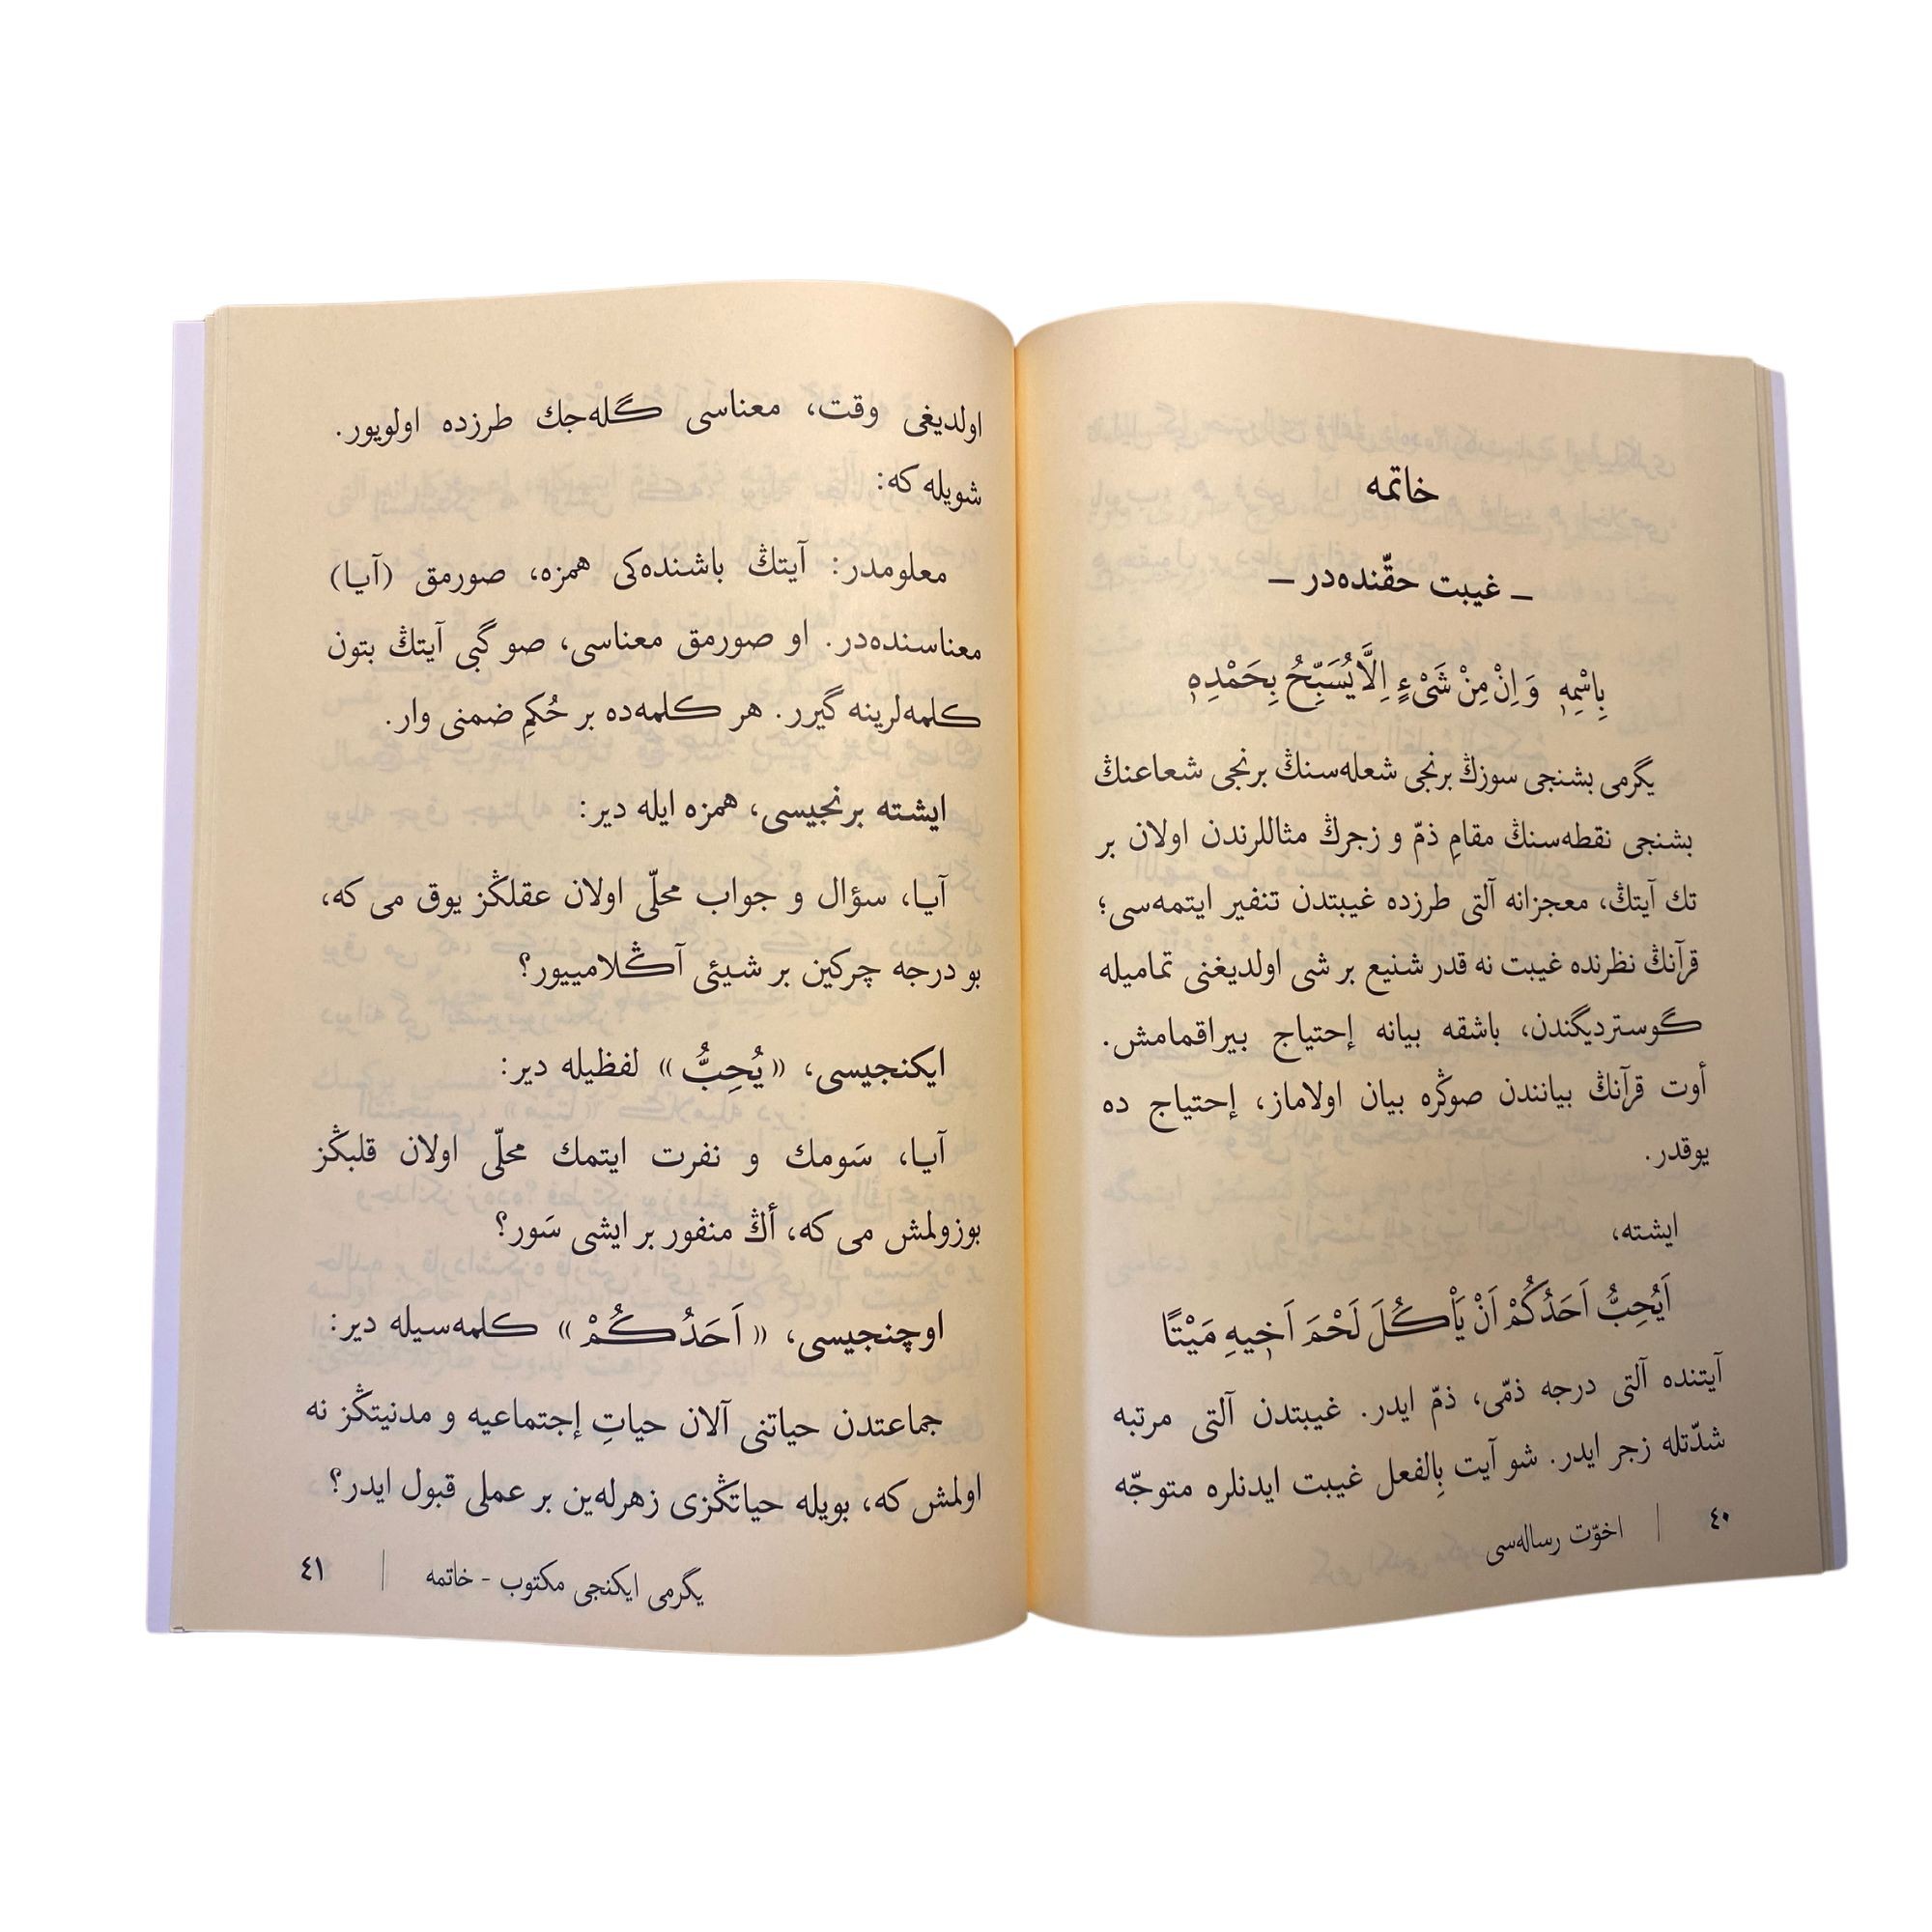 خاتمه
– غيبت حقّنده‌در –
بِاسْمِهِ وَاِنْ مِنْ شَیْءٍ اِلَّا يُسَبِّحُ بِحَمْدِهِ
يگرمی بشنجی سوزڭ برنجی شعله‌سنڭ برنجی شعاعنڭ
بشنجی نقطه‌سنڭ مقامِ ذمّ و زجرڭ مثاللرندن اولان بر
تك آيتڭ، معجزانه آلتی طرزده غيبتدن تنفير ايتمه‌سی؛
قرآنڭ نظرنده غيبت نه قدر شنيع بر شی اولديغنی تماميله
گوسترديگندن، باشقه بيانه إحتياج بيراقمامش.
أوت قرآنڭ بيانندن صوڭره بيان اولاماز، إحتياج ده
يوقدر.
ايشته،
اَيُحِبُّ اَحَدُكُمْ اَنْ يَاْكُلَ لَحْمَ اَخٖيهِ مَيْتًا
آيتنده آلتی درجه ذمّی، ذمّ ايدر. غيبتدن آلتی مرتبه
شدّتله زجر ايدر. شو آيت بِالفعل غيبت ايدنلره متوجّه
٤٠ | اخوّت رساله‌سی
اولديغی وقت، معناسی گله‌جك طرزده اولويور.
شويله كه:
معلومدر: آيتڭ باشنده‌كی همزه، صورمق (آيا)
معناسنده‌در. او صورمق معناسی، صو گبی آيتڭ بتون
كلمه‌لرينه گيرر. هر كلمه‌ده بر حُكمِ ضمنی وار.
ايشته برنجيسی، همزه ايله دير:
آيا، سؤال و جواب محلّی اولان عقلڭز يوق می كه،
بو درجه چركين بر شيئی آڭلامييور؟
ايكنجيسی، «يُحِبُّ» لفظيله دير:
آيا، سَومك و نفرت ايتمك محلّی اولان قلبڭز
بوزولمش می كه، أڭ منفور بر ايشی سَور؟
اوچنجيسی، «اَحَدُكُمْ» كلمه‌سيله دير:
جماعتدن حياتنی آلان حياتِ إجتماعيه و مدنيتڭز نه
اولمش كه، بويله حياتڭزی زهرله‌ين بر عملی قبول ايدر؟
يگرمی ايكنجی مكتوب - خاتمه | ٤١